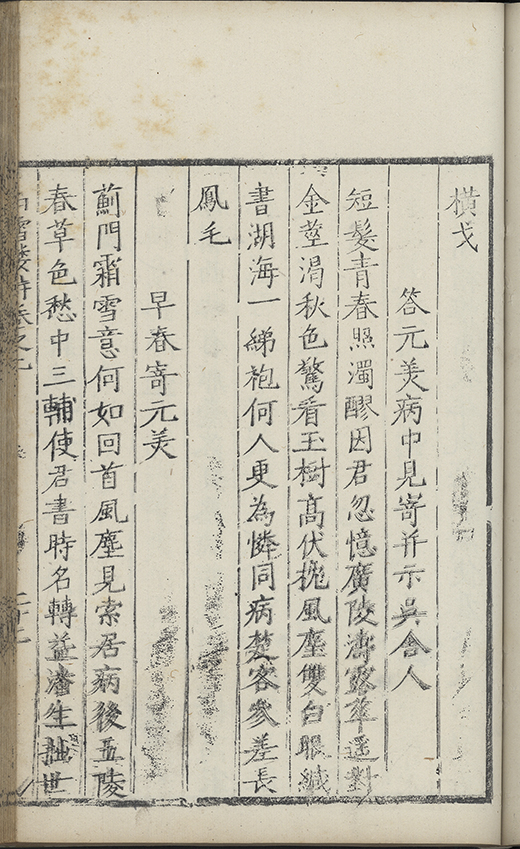 橫戈
答元美病中見寄并示吳舍人
短髮青春照濁醪因君忽憶廣陵濤露華遥對
金莖渴秋色驚看玉樹高伏枕風塵雙白眼緘
書湖海一綈袍何人更為憐同病楚客參差長
鳳毛
早春寄元美
薊門霜雪意何如回首風塵見索居病後五陵
春草色愁中三輔使君書時名轉益潘生拙世
雪樓詩卷之